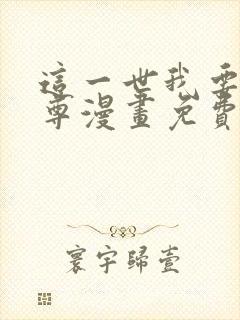 這一世我要
尊漫畫免費
寰宇歸壹